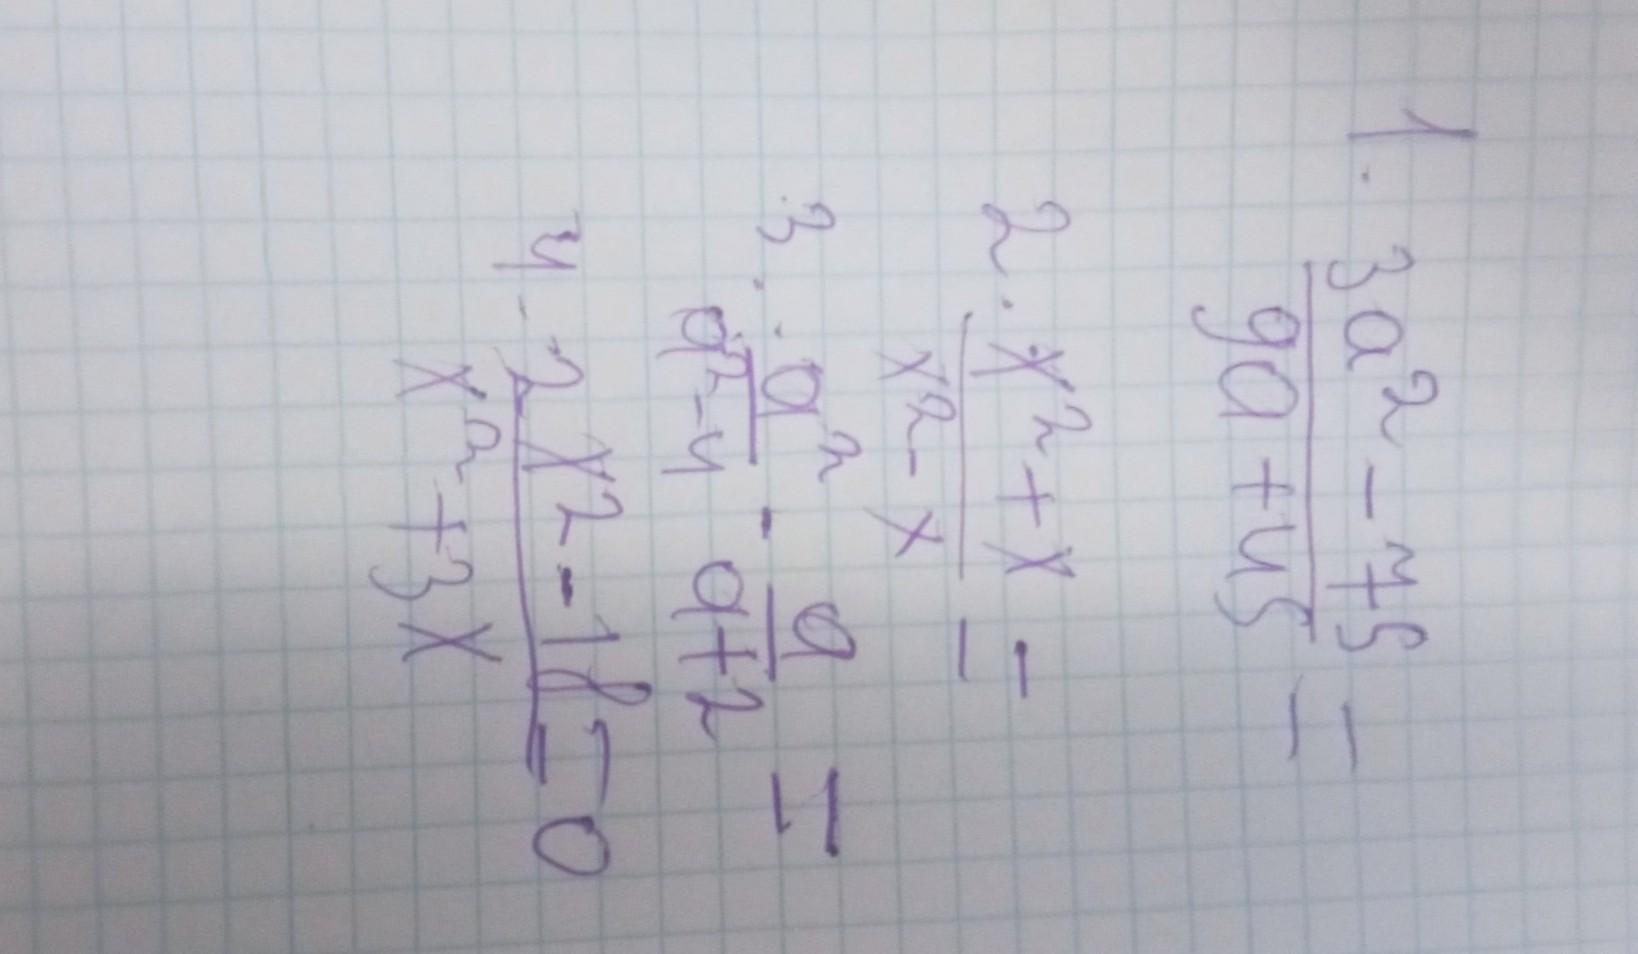 1. 3a² - 75 =
9a + 45
2. x² + x =
x² - x
3. a² : a =
a² - 4 a + 2
4. 2x² - 18 = 0
x² + 3x